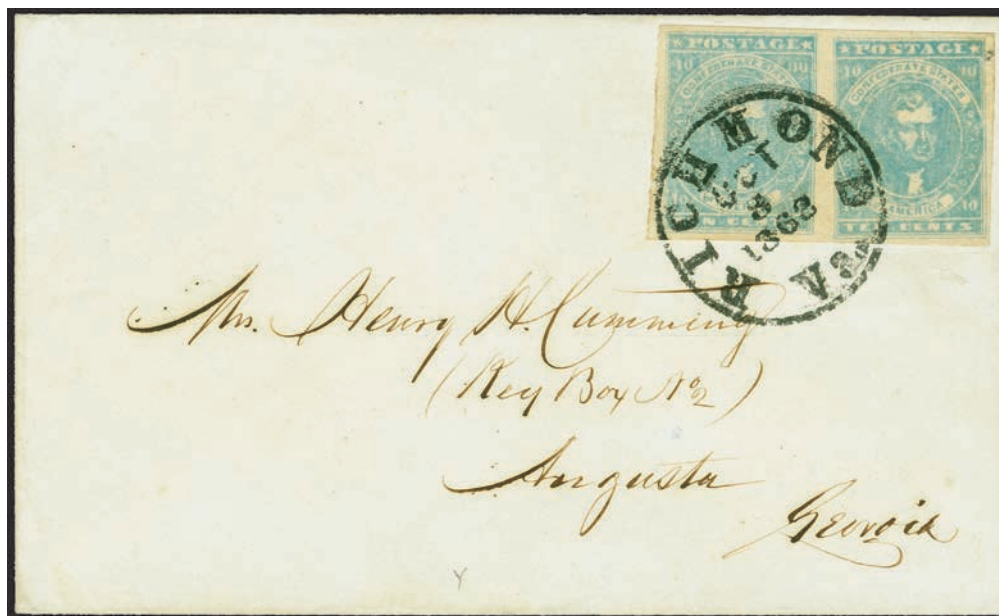 POSTAGE
10 10
CONFEDERATE STATES
10
N CEN
POSTAGE
10 10
CONFEDERATE STATES
AMERICA
10
TEN CENTS
RICHMOND VA.
OCT
1863
Mrs. Henry H. Cumming
(Key Box No 2)
Augusta
Georgia
Y